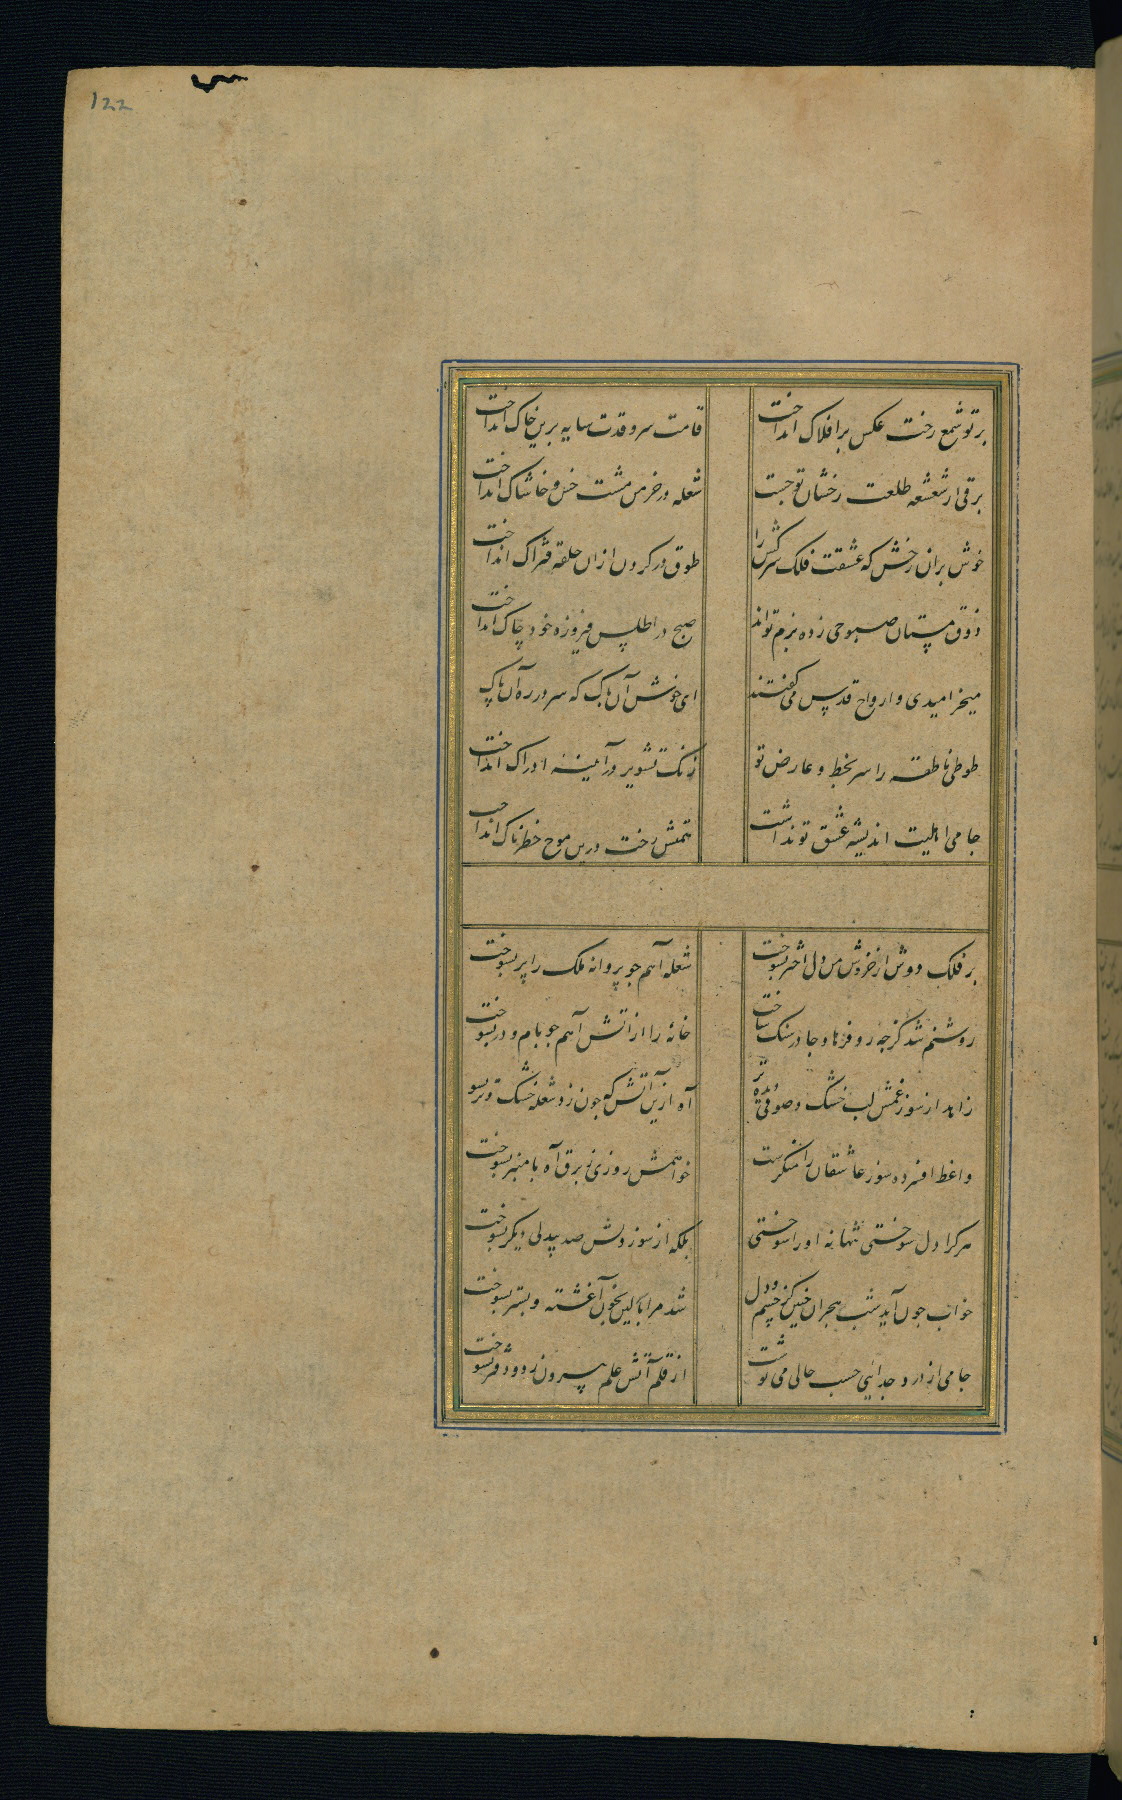 122
پرتو شمع رخت عکس بر افلاک انداخت
قامت سرو قدت سایه برین خاک انداخت
برقی از شعشعه طلعت رخشان تو جست
شعله در خرمن مشت خس و خاشاک انداخت
خوش بران رخش که عشقت فلک سرکش را
طوق در کردن ازان حلقه فتراک انداخت
ذوق مستان صبوحی زده بزم تو اند
صبح در اطلس فیروزه خود چاک انداخت
میخرامیدی و ارواح قدس می کفتند
ای خوش آن پاک که سر در ره آن پاک
طوطی ناطقه را سر بخط و عارض تو
زنک تشویر در آیینه ادراک انداخت
جامی اهلیت اندیشه عشق تو نداشت
همتش رخت درین موج خطرناک انداخت
بر فلک دوش از خروش من دل اختر بسوخت
شعله آهم جو پروانه ملک را پر بسوخت
روشنم شد کز جه رو فرهاد جا در سنک ساخت
خانه را از اتش آهم جو بام و در بسوخت
زاهد از سوز غمش لب خشک و صوفی دیده تر
آه ازین آتش که جون زد شعله خشک و تر بسو
واعظ افسرده سوز عاشقان را منکرست
خواهمش روزی ز برق آه با منبر بسوخت
هر کرا دل سوختی تنها نه او را سوختی
بلکه از سوز دلش صد بیدلی دیکر بسوخت
خواب جون آید شب هجران جنین کز جشم و دل
شد مرا بالین بخون آغشته و بستر بسوخت
جامی از درد جدایی حسب حالی می نوشت
از قلم آتش علم بیرون زد و دفتر بسوخت